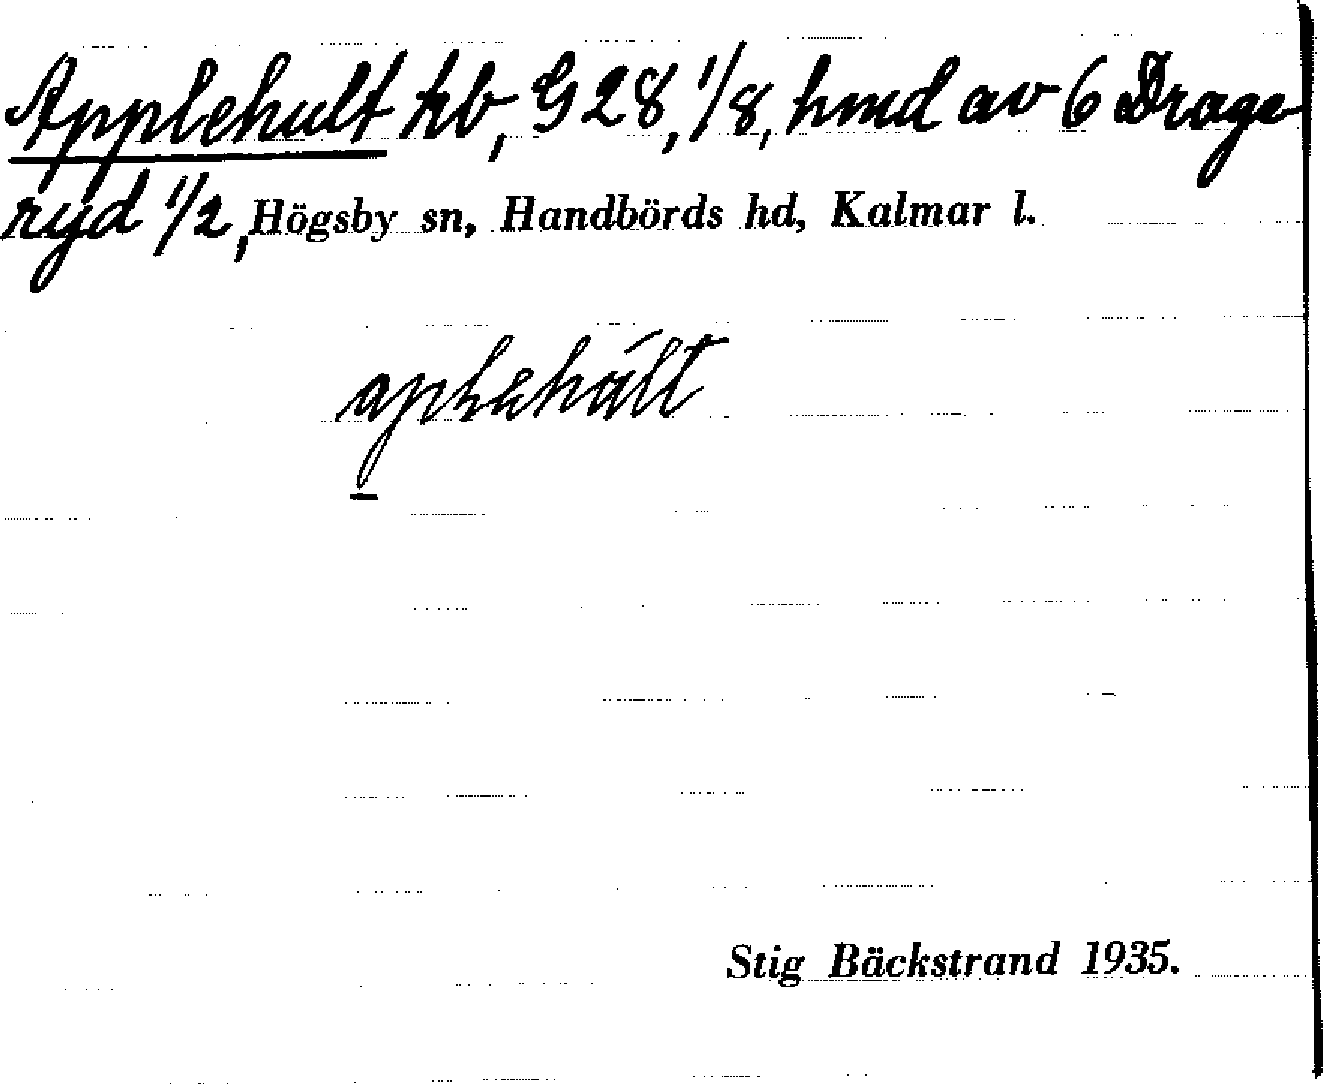 Applehult hb, G 28, 1/8, hmd av 6 Drage
ryd 1/2, Högsby sn, Handbörds hd, Kalmar l.
aplehált
Stig Bäckstrand 1935.